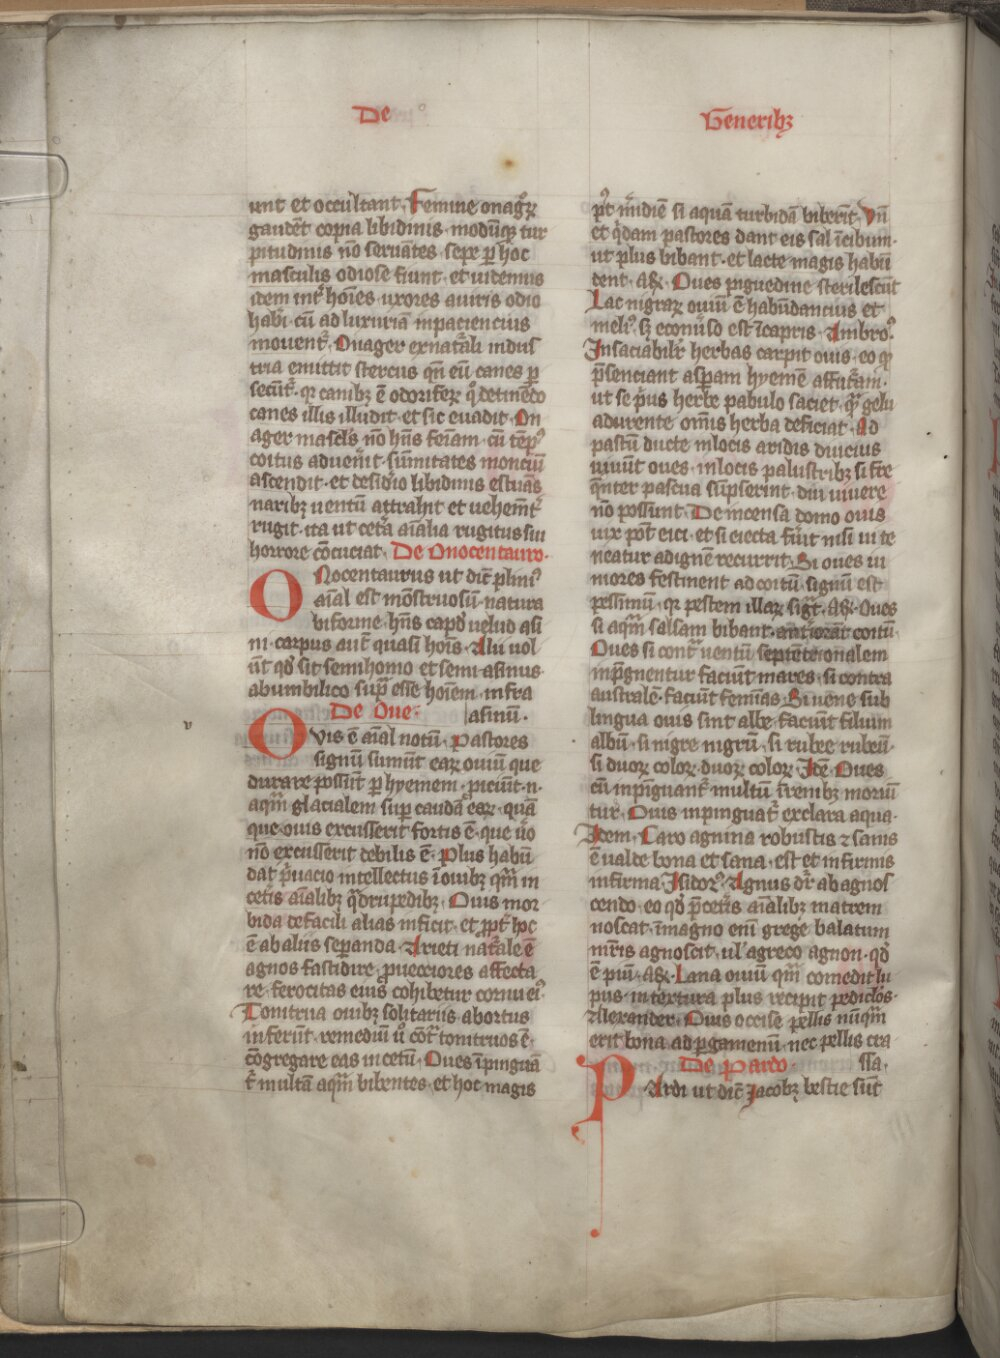 De
Generibꝫ
unt et occultant. Femine onagꝝ
gaudēt copia libidinis. modūqꝫ tur
pitudinis nō seruātes. sepe ꝑ hoc
masculis odiose fiunt. et uidemus
idem int̄ hoīes. uxores auiris odio
habi. cū ad luxuriā inpaciencius
mouent̄. Onager ex nat̄ali indus
tria emittit stercus qn̄ eū canes ꝑ
secūt̄. qꝛ canibꝫ ē odoriferꝝ
canes illis illudit. et sic euadit. On
ager mascl's nō hn̄s feīam. cū tēꝑꝰ
coitus aduen̄it. sūmitates monciū
ascendit. et desidio libidinis estuās
naribꝫ uentū attrahit et uehem̄t̄
rugit. ita ut cet̄a aīalia rugitus sui
horrore cōcuciat. De Onocentauro.
Onocentaurus ut dic̄t pliniꝰ
aīal est mōstruosū. natura
biforme. hn̄s capđ uelud asi
ni. corpus aut̄ quasi hoīs. Alii uol
ūt qđ sit semihomo et semi asinus
abumbilico suꝑ esse hoīem. infra
asinū.
De Oue.
Ovis ē aīal notū. Pastores
signū sumūt earꝝ ouiū que
durare possūt ꝑ hyemem. piciūt .n.
aqm̄ glacialem suꝑ caudā earꝝ. quā
que ouis excusserit fortis ē. que ūo
nō excusserit debilis ē. Plus habū
dat ꝑuacio intellectus ī ouibꝫ qm̄ in
cet̄is aīalibꝫ qͣdrupedibꝫ. Ouis mor
bida de facili alias inficit. et ꝓpt̄ hoc
ē ab aliis seꝑanda. Arieti nat̄ale ē
agnos fastidire. ꝓuecciores affecta
re. ferocitas eius cohibetur cornu eiꝰ
Tonitrua ouibꝫ solitariis abortus
inferūt. remediū ū cōt̄ tonitruos ē.
cōgregare eas in cetū. Oues īpinguā
t̄ multā aqm̄ bibentes. et hoc magis
pꝰt m̄idiē si aquā turbidā biberīt. Vn̄
et qͥdam pastores dant eis sal ī cibum.
ut plus bibant. et lacte magis habū
dent. Oues piguedine sterilescūt
Lac nigrarꝝ ouiū ē habūdancius et
meliꝰ. sꝫ econūso est ī capris. Ambroꝰ.
Insaciabilit̄ herbas carpit ouis. eo qꝫ
p̄senciant asꝑam hyemē affut̄am.
ut se pͥus herbe pabulo saciet. qͣꝫ gelu
adurente omīs herba deficiat. Ad
pastū ducte in locis aridis diucius
uiuūt oues. in locis palustribꝫ si fre
quēnter pascua sūpserint. diu uiuere
nō possunt. De incensa domo ouis
uix pōt eici. et si eiecta fūit nisi iu te
neatur ad ignē recurrit. Si oues iu
niores festinent ad coitū. signū est
pessimū. qꝛ pestem illarꝝ sigt̄. Oues
si aqm̄ salsam bibant. coitū.
Oues si cont̄ uentū septentrionalem
impgnentur faciūt mares. si contra
australē. faciūt feminas. Si uene sub
lingua ouis sint albe. faciūt filium
albū. si nigre nigrū. si rubee rubeū.
si duorꝝ colorꝝ duorꝝ colorꝝ. Idē. Oues
cū inpinguant̄ multū ī renibꝫ moriun
tur. Ouis inpinguat̄ ex clara aqua.
Idem. Caro agnina robustis ⁊ sanis
ē ualde bona et sana. est et infirmis
infirma. Isidorꝰ. Agnus dr̄ ab agnos
cendo. eo qđ p̄ cet̄is aīalibꝫ matrem
noscat. in magno enī grege balatum
mr̄is agnoscit. ul' a greco agnon. qđ
ē pium. Lana ouiū qm̄ comedit lu
pus. in textura plus recipit pediclōs.
Alexander. Ouis occise pellis nūqm̄
erit bona ad ꝑgamenū. nec pellis cra
ssa.
De Pardo.
Pardi ut dic̄t Jacobꝫ bestie sūt